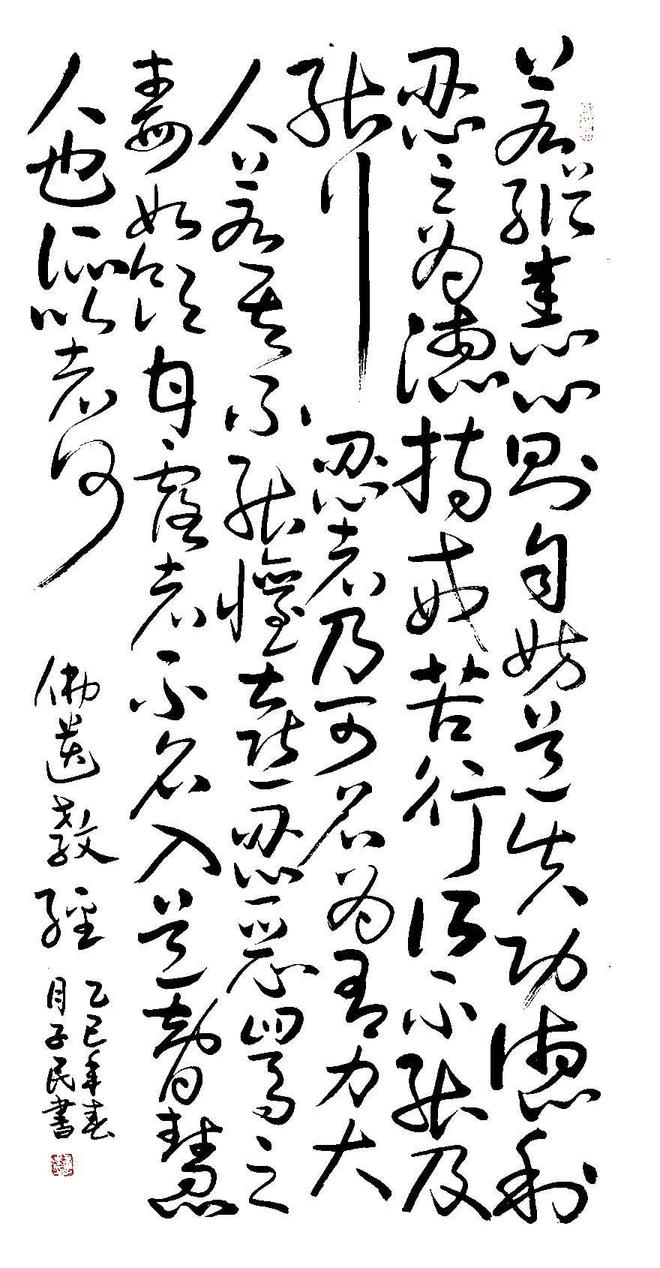 若縱恚心則自妨道失功德利
忍之為德持戒苦行所不能及
能行忍者乃可名為有力大
人若其不能懽喜忍受惡罵之
毒如飲甘露者不名入道智慧
人也所以者何
佛遺教經
乙巳年春
月子民書